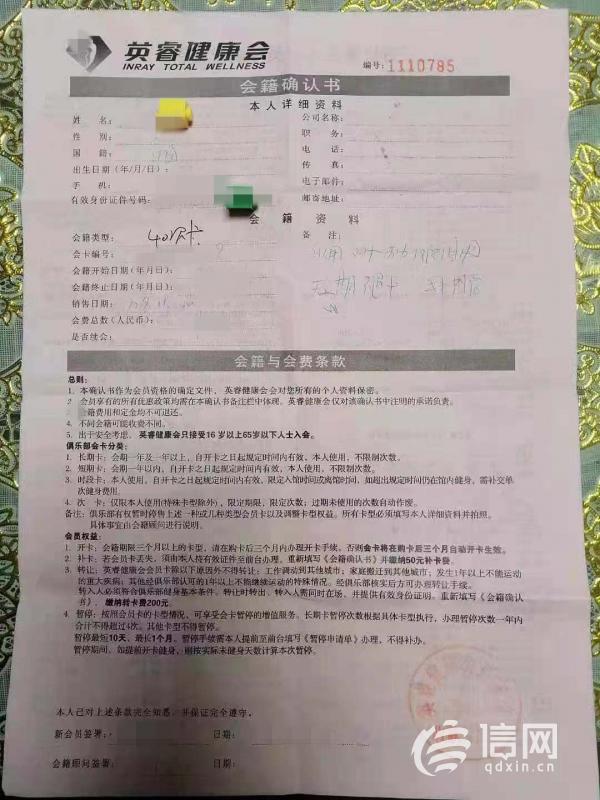 英睿健康会
INRAY TOTAL WELLNESS
编号：1110785
会籍确认书
本人详细资料
姓名： 公司名称：
性别： 职务：
国籍： 电话：
出生日期（年/月/日）： 传真：
手机： 电子邮件：
有效身份证件号码： 邮寄地址：
会籍资料
会籍类型： 40次卡 备注：
会卡编号：
会籍开始日期（年月日）：
会籍终止日期（年月日）：
销售日期：
会费总数（人民币）：
是否续会：
会籍与会费条款
总则：
1. 本确认书作为会员资格的确定文件，英睿健康会会对您所有的个人资料保密。
2. 会员享有的所有优惠政策均需在本确认书备注栏中体现，英睿健康会仅对该确认书中注明的承诺负责。
会籍费用和定金均不可退还。
4. 不同会籍可能收费不同。
5. 出于安全考虑，英睿健康会只接受16岁以上65岁以下人士入会。
俱乐部会卡分类：
1. 长期卡：会期一年及一年以上，自开卡之日起规定时间内有效，本人使用，不限制次数。
2. 短期卡：会期一年以内，自开卡之日起规定时间内有效，本人使用，不限制次数。
3. 时段卡：本人使用，自开卡之日起规定时间内有效，限定入馆时间或离馆时间，如超出规定时间仍在馆内健身，需补交单
次健身费用。
4. 次 卡：仅限本人使用（特殊卡型除外），限定期限，限定次数；过期未使用的次数自动作废。
备注：俱乐部有权暂时停售上述一种或几种类型会员卡以及调整卡型权益。所有卡型必须填写本人详细资料并拍照。
具体事宜由会籍顾问进行说明。
会员权益：
1. 开卡：会籍期限三个月以上的卡型，请在购卡后三个月内办理开卡手续，否则会卡将在购卡后三个月自动开卡生效。
2. 补卡：若会员卡丢失，须由本人持有效证件至前台办理，重新填写《会籍确认书》并缴纳50元补卡费。
3. 转让：英睿健康会会员卡除以下原因外不得转让：工作调动到其他城市；家庭搬迁到其他城市；发生1年以上不能运动
的重大疾病；其他经俱乐部认可的1年以上不能继续运动的特殊情况。经俱乐部核实后方可办理转让手续。
转入人必须符合俱乐部健身基本条件。转让时转出、转入人需同时在场，并提供有效身份证明。重新填写《会籍确认
书》，缴纳转卡费200元。
4. 暂停：按照会员卡的卡型情况，可享受会卡暂停的增值服务。长期卡暂停次数根据具体卡型执行，办理暂停次数一年内
合计不得超过4次。其他卡型不得暂停。
暂停最短10天，最长1个月。暂停手续需本人提前至前台填写《暂停申请单》办理，不得补办。
暂停期间，如提前开卡健身，则按实际未健身天数计算本次暂停。
本人已对上述条款完全知悉，并保证完全遵守。
新会员签署： 日期：
会籍顾问签署： 日期：
信网
qdxin.cn